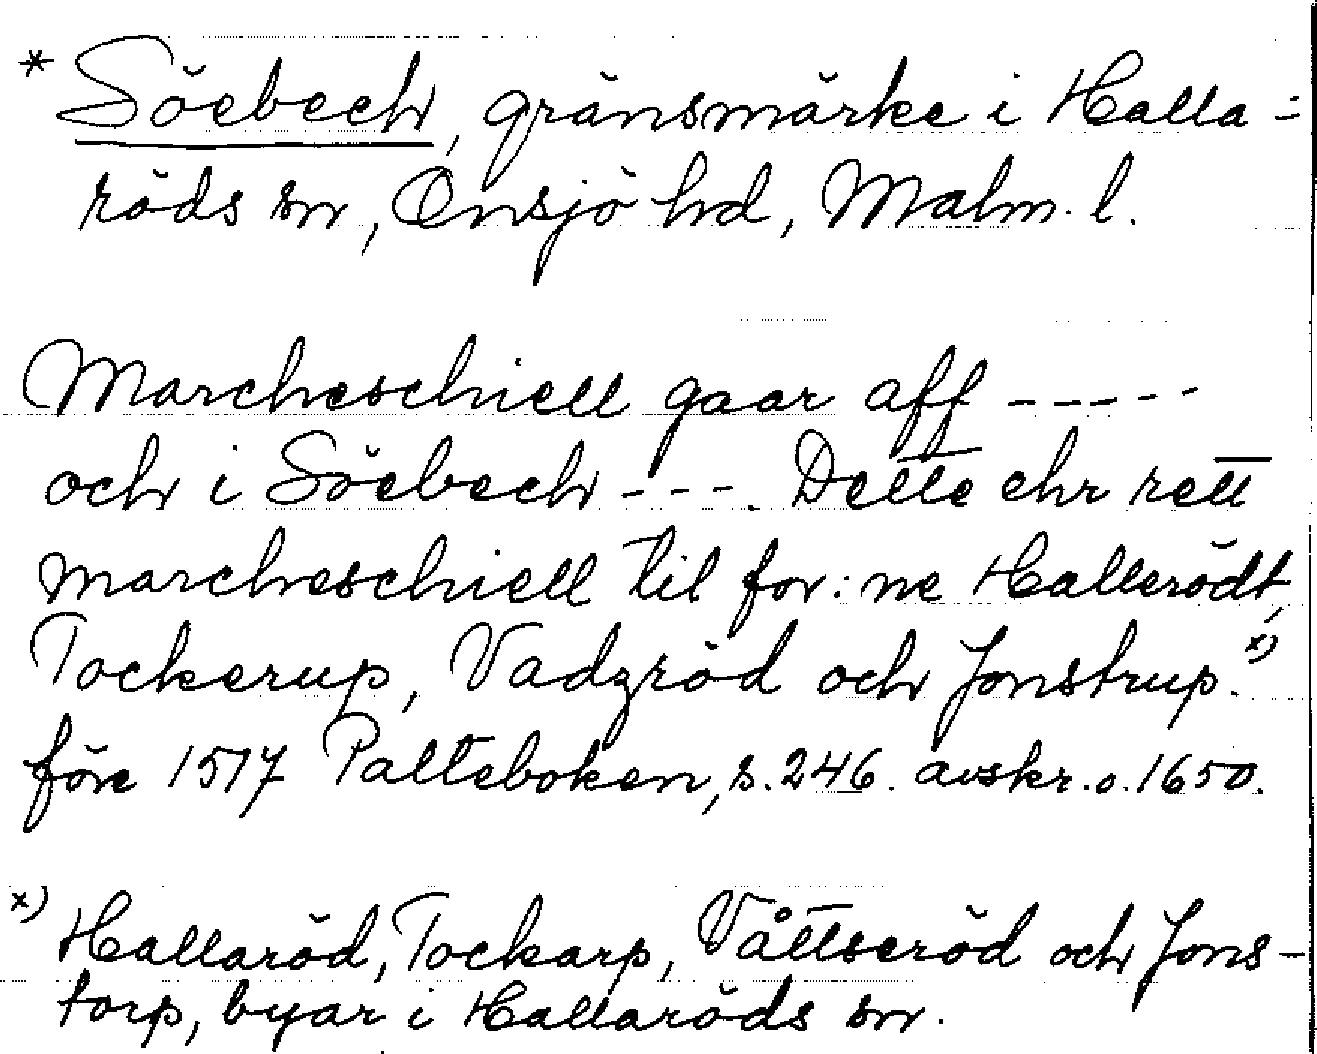 * Söebech, gränsmärke i Halla=
röds sn, Onsjö hd, Malm. l.
Marcheschiell gaar aff -----
och i Söebech ---. Dette ehr rett
marcheschiell til for:ne Hallerödt,
Tockerup, Vadzröd och Jonstrup.x)
före 1517 Palteboken, s. 246. avskr. o. 1650.
x) Hallaröd, Tockarp, Våttseröd och Jons-
torp, byar i Hallaröds sn.